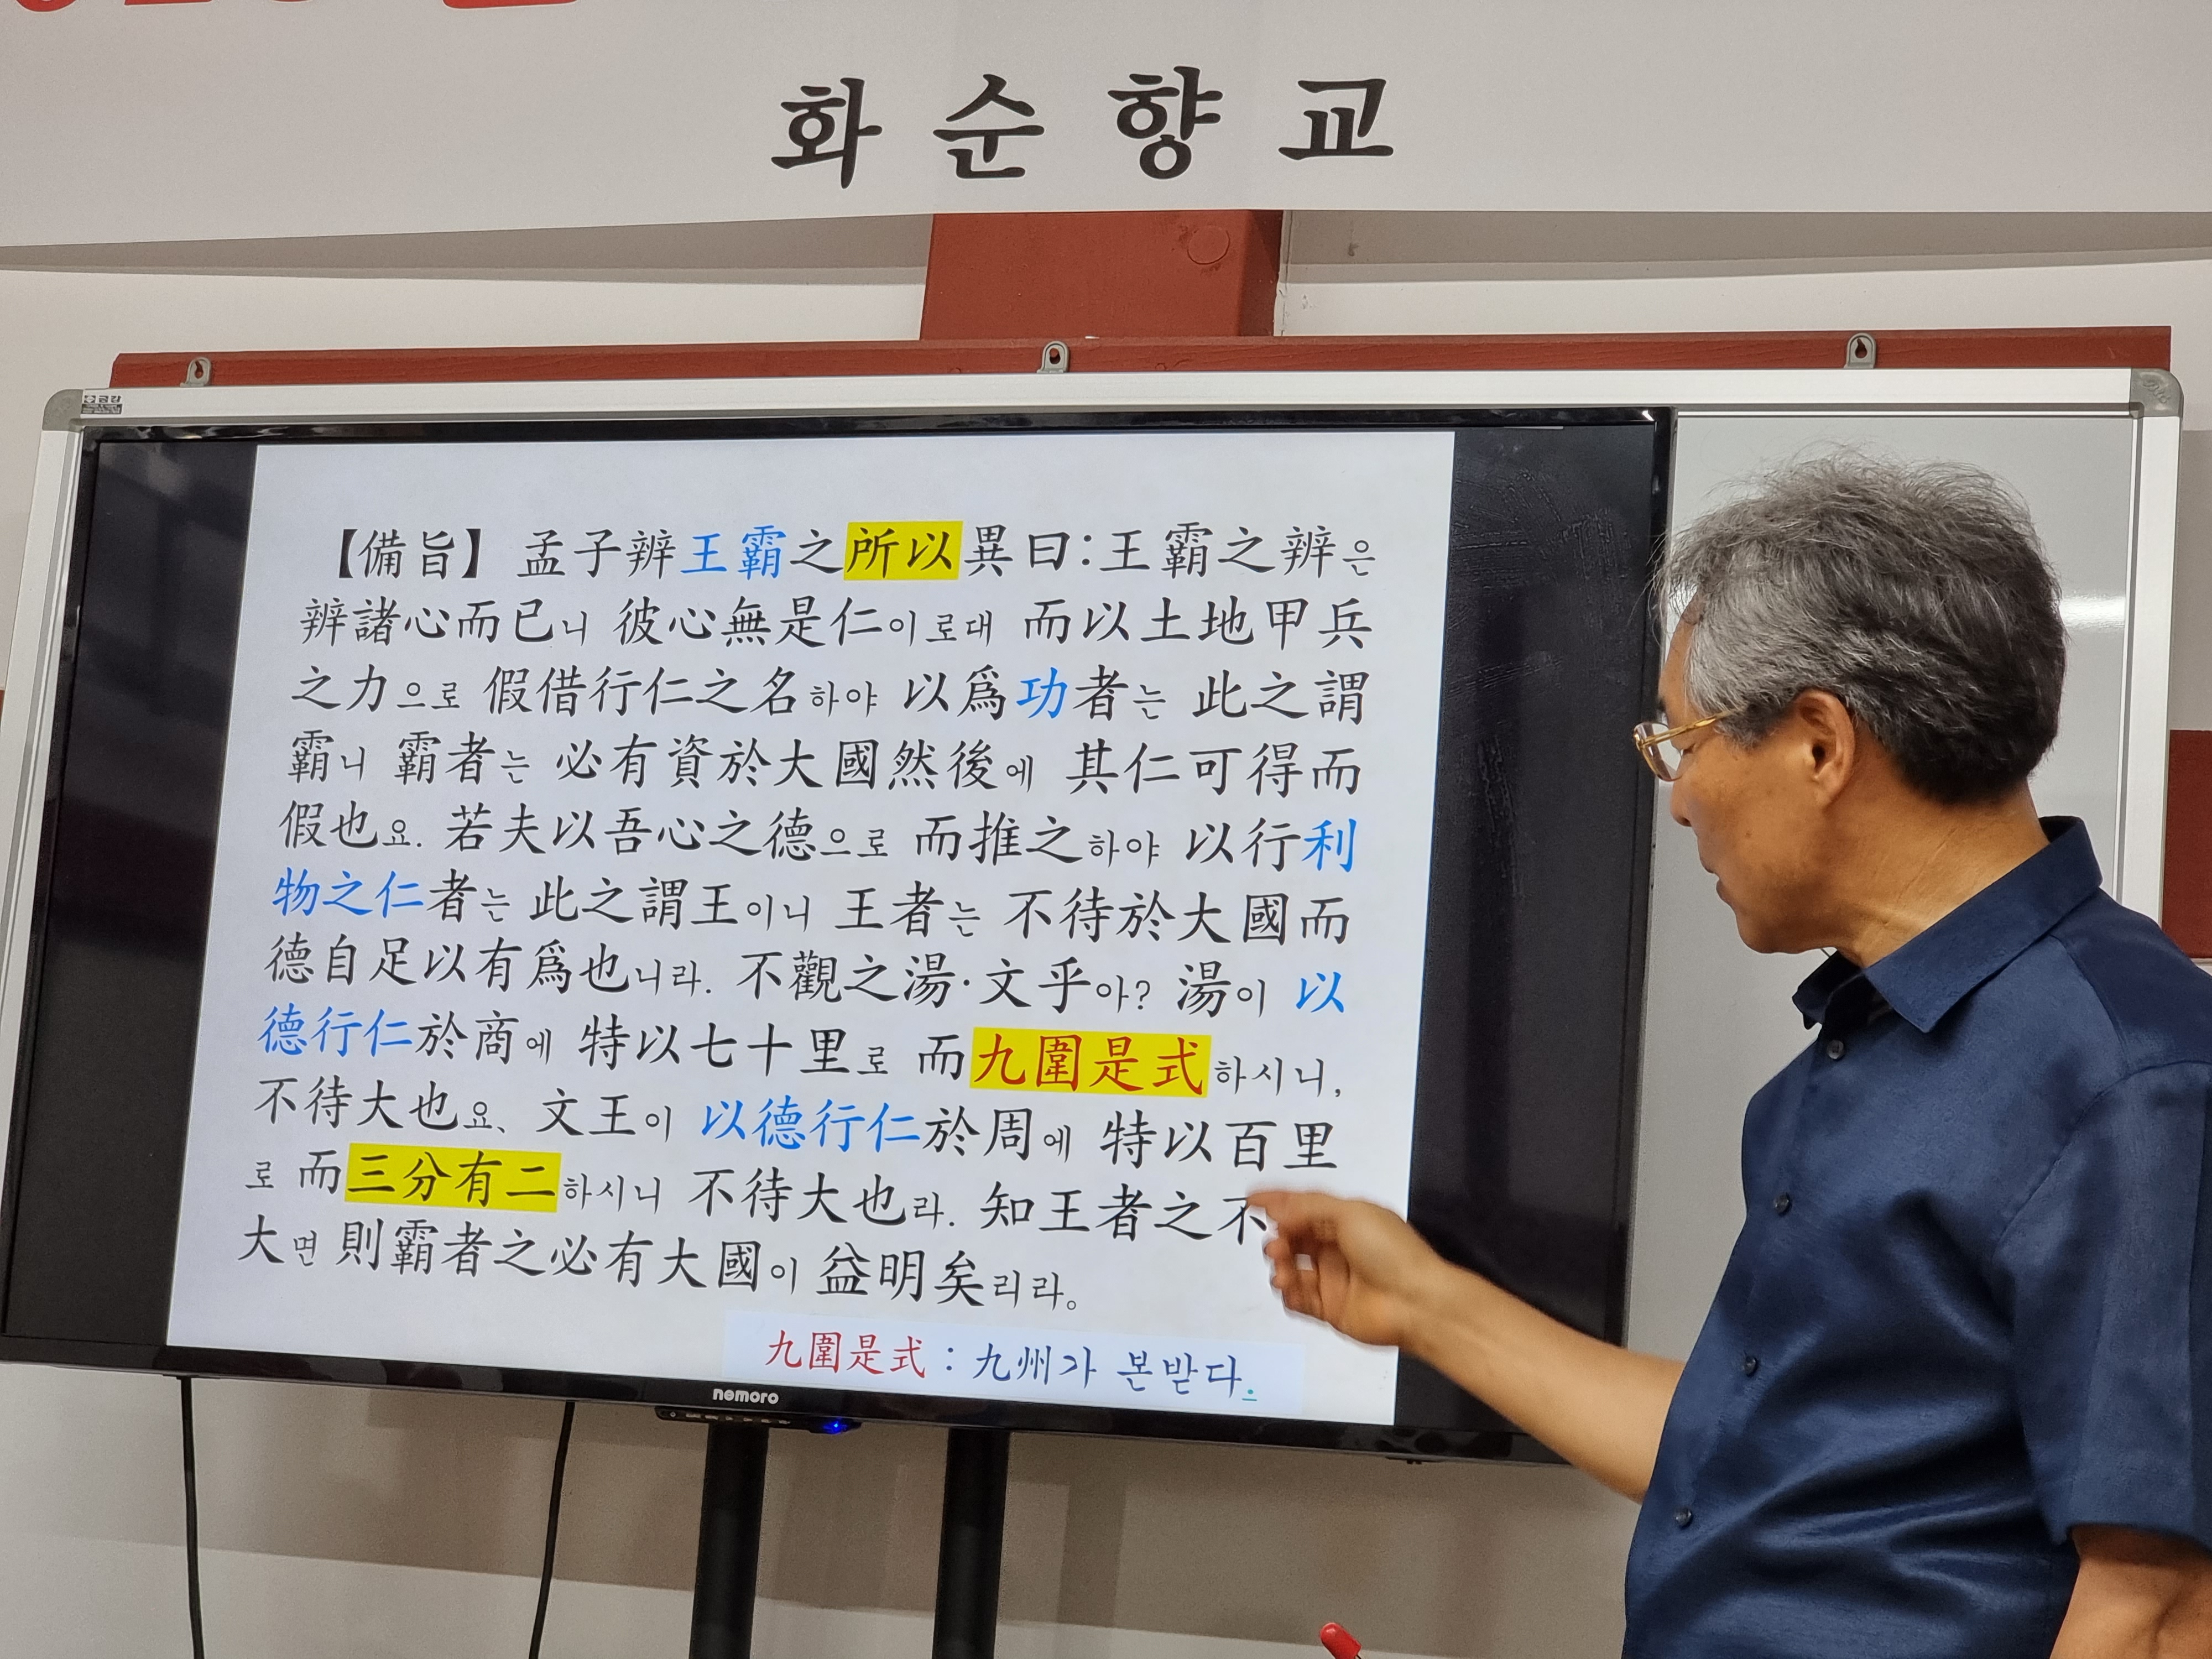 화순향교
【備旨】 孟子辨王霸之所以異曰：王霸之辨은
辨諸心而已니 彼心無是仁이로대 而以土地甲兵
之力으로 假借行仁之名하야 以爲功者는 此之謂
霸니 霸者는 必有資於大國然後에 其仁可得而
假也요. 若夫以吾心之德으로 而推之하야 以行利
物之仁者는 此之謂王이니 王者는 不待於大國而
德自足以有爲也니라. 不觀之湯·文乎아? 湯이 以
德行仁於商에 特以七十里로 而九圍是式하시니,
不待大也요、 文王이 以德行仁於周에 特以百里
로 而三分有二하시니 不待大也라. 知王者之不
大면 則霸者之必有大國이 益明矣리라。
九圍是式 : 九州가 본받다.
nemoro